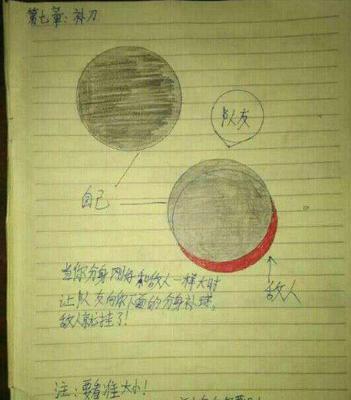 第七章：补刀
队友
自己
敌人
当你分身刚好和敌人一样大时
让队友向你下面的分身补球,
敌人就挂了!
注：要看准大小!